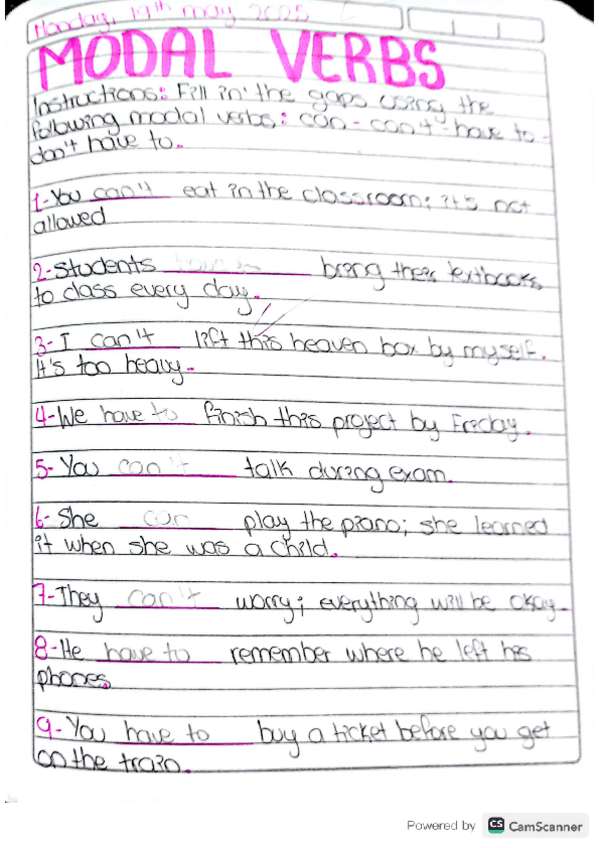 Monday, 19th may 2025
MODAL VERBS
Instructions: Fill in the gaps using the
following modal verbs: can - can't - have to -
don't have to.
1-You can't eat in the classroom; it's not
allowed
2-Students have to bring their textbooks
to class every day.
3-I can't lift this heaven box by myself.
It's too heavy.
4-We have to finish this project by Friday.
5-You can't talk during exam.
6-She can play the piano; she learned
it when she was a child.
7-They can't worry; everything will be okay.
8-He have to remember where he left his
phones
9-You have to buy a ticket before you get
on the train.
Powered by CS CamScanner